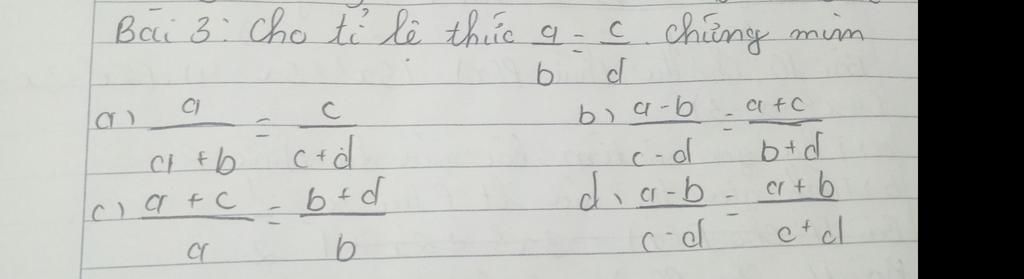 Bài 3: Cho tỉ lệ thức a/b = c/d. Chứng mim
a) a/(a+b) = c/(c+d) b) (a-b)/(c-d) = (a+c)/(b+d)
c) (a+c)/a = (b+d)/b d) (a-b)/(c-d) = (a+b)/(c+d)